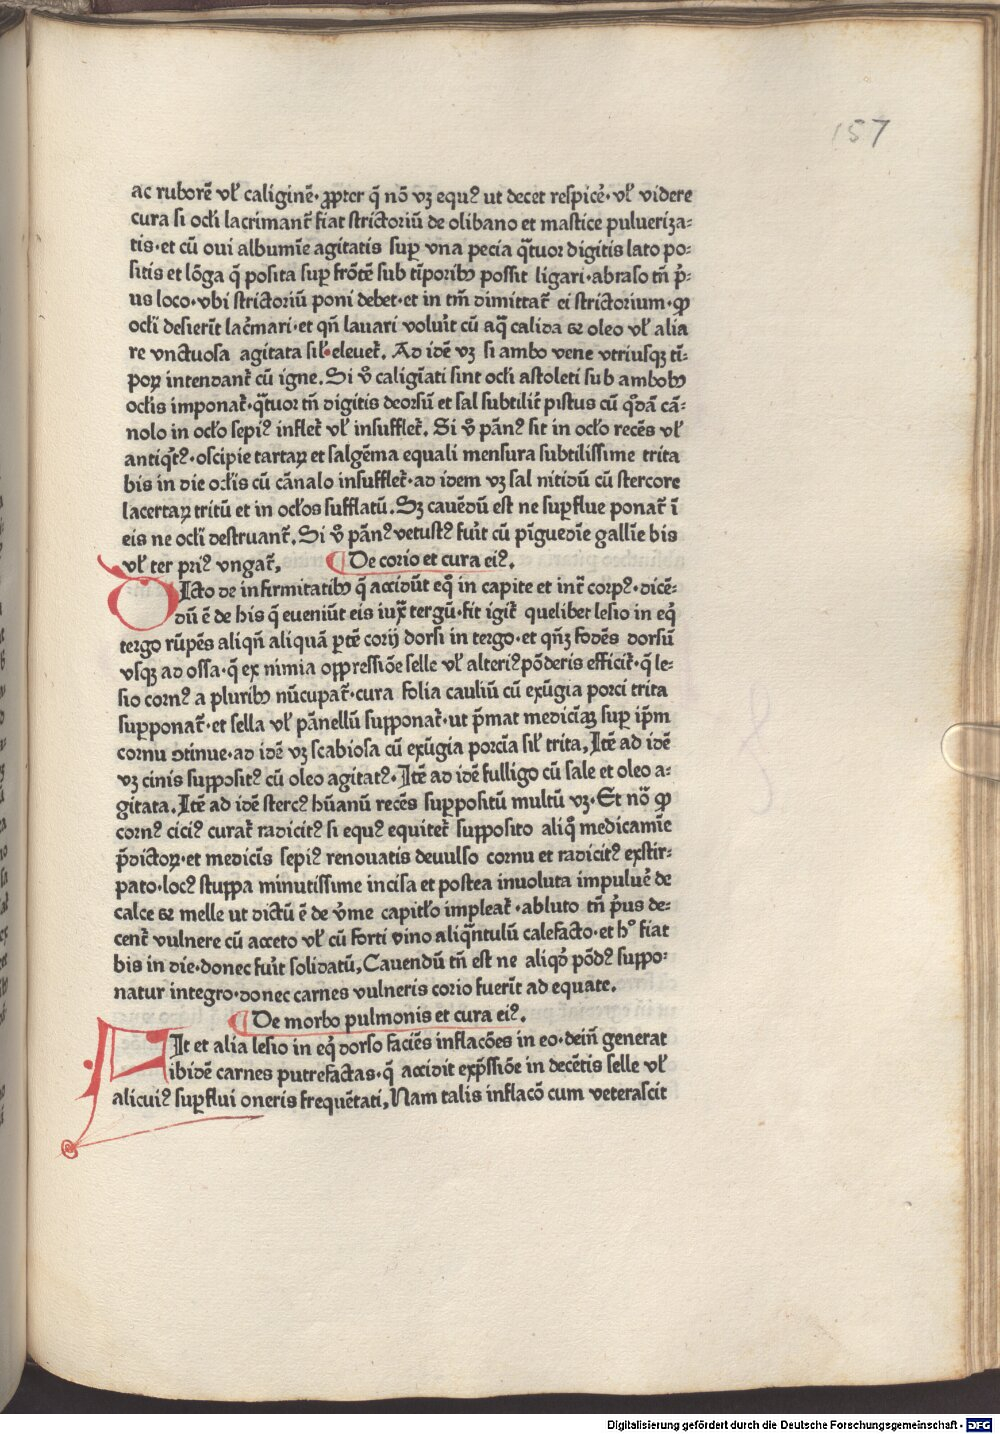 157
ac ruborē vł caliginē· ꝓpter q̄ nō vꝫ equꝰ ut decet respicẽ· vł videre
cura si ocłi lacrimant̃ fiat strictoriū de olibano et mastice pulueriza⸗
tis· et cū oui albumīe agitatis suꝑ vna pecia q̄tuor digitis lato po⸗
sitis et lōga q̄ posita suꝑ frōtē sub tīporibꝰ possit ligari· abraso tñ p̄⸗
us loco· vbi strictoriū poni debet· et in tm̄ dimittat̃ ei strictorium· ꝙ
ocłi desierīt lac̃mari· et qñ lauari voluĩt cū aq̄ calida ⁊ oleo vł alia
re vnctuosa agitata sił· eleuet̃. Ad idē vꝫ si ambo vene vtriusqꝫ tī⸗
poꝝ intendant̃ cū igne. Si v̄o caligīati sint ocłi astoleti sub ambobꝰ
ocłis imponat̃· q̄tuor tñ digitis deorsū et sal subtilit̃ pistus cū q̄dā cā⸗
nolo in ocło sepiꝰ inflet̃ vł insufflet̃. Si v̄o pānꝰ sit in ocło recēs vł
antiq̄tꝰ· oscipie tartaꝝ et salgēma equali mensura subtilissime trita
bis in die ocłis cū cānalo insufflet̃· ad idem vꝫ sal nitidū cū stercore
lacertaꝝ tritū et in ocłos sufflatū. Sꝫ cauēdū est ne suꝑflue ponat̃ ī
eis ne ocłi destruant̃. Si v̄o pānꝰ vetustꝰ fuĩt cū pīguedīe gallīe bis
vł ter priꝰ vngat̃, De corio et cura eiꝰ.
DIcto de infirmitatibꝰ q̄ accidūt eq̄ in capite et int̃ corpꝰ· dicē⸗
dū ē de his q̄ eueniūt eis iux̄ tergū· fit igit̃ quelibet lesio in eq̄
tergo rūpēs aliqñ aliquā ꝑtē corij dorsi in tergo· et qñꝫ fodēs dorsū
vsqꝫ ad ossa· q̄ ex nimia oꝑressiōe selle vł alteriꝰ pōderis efficit̃· q̄ le⸗
sio cornꝰ a pluribꝰ nūcupat̃· cura folia cauliū cū exūgia porci trita
supponat̃· et sella vł pānellū supponat̃· ut p̄mat mediciāꝫ suꝑ ip̄m
cornu ↄtinue· ad idē vꝫ scabiosa cū exūgia porcīa sił trita, Itē ad idē
vꝫ cinis suppositꝰ cū oleo agitatꝰ· Itē ad idē fulligo cū sale et oleo a⸗
gitata. Itē ad idē stercꝰ hūanū recēs suppositū multū vꝫ· Et nō ꝙ
cornꝰ ciciꝰ curat̃ radicitꝰ si equꝰ equitet̃ supposito aliq̄ medicamīe
p̄dictoꝝ· et medicīs sepiꝰ renouatis deuulso cornu et radicitꝰ exstir⸗
pato· locꝰ stuppa minutissime incisa et postea inuoluta impuluẽ de
calce ⁊ melle ut dictū ē de v̄me capitło impleat̃· abluto tñ p̄us de⸗
cent̃ vulnere cū acceto vł cū forti vino aliq̄ntulū calefacto· et hꝰ fiat
bis in die· donec fuĩt solidatū, Cauendū tñ est ne aliqd̄ pōdꝰ suppo⸗
natur integro· donec carnes vulneris corio fuerīt ad equate.
De morbo pulmonis et cura eiꝰ.
FIt et alia lesio in eq̄ dorso faciēs inflacōes in eo· deiñ generat
ibidē carnes putrefactas· q̄ accidit exp̄ssiōe in decētis selle vł
alicuiꝰ suꝑflui oneris frequētati, Nam talis inflacō cum veterascit
Digitalisierung gefördert durch die Deutsche Forschungsgemeinschaft - DFG